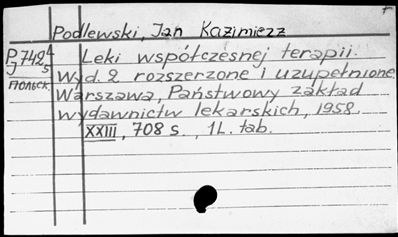 Podlewski, Jan Kazimierz
P 742 4 Leki współczesnej terapii.
J 5 Wyd. 2 rozszerzone i uzupełnione.
польск. Warszawa, Państwowy zakład
wydawnictw lekarskich, 1958.
XXIII, 708 s., 1L. tab.